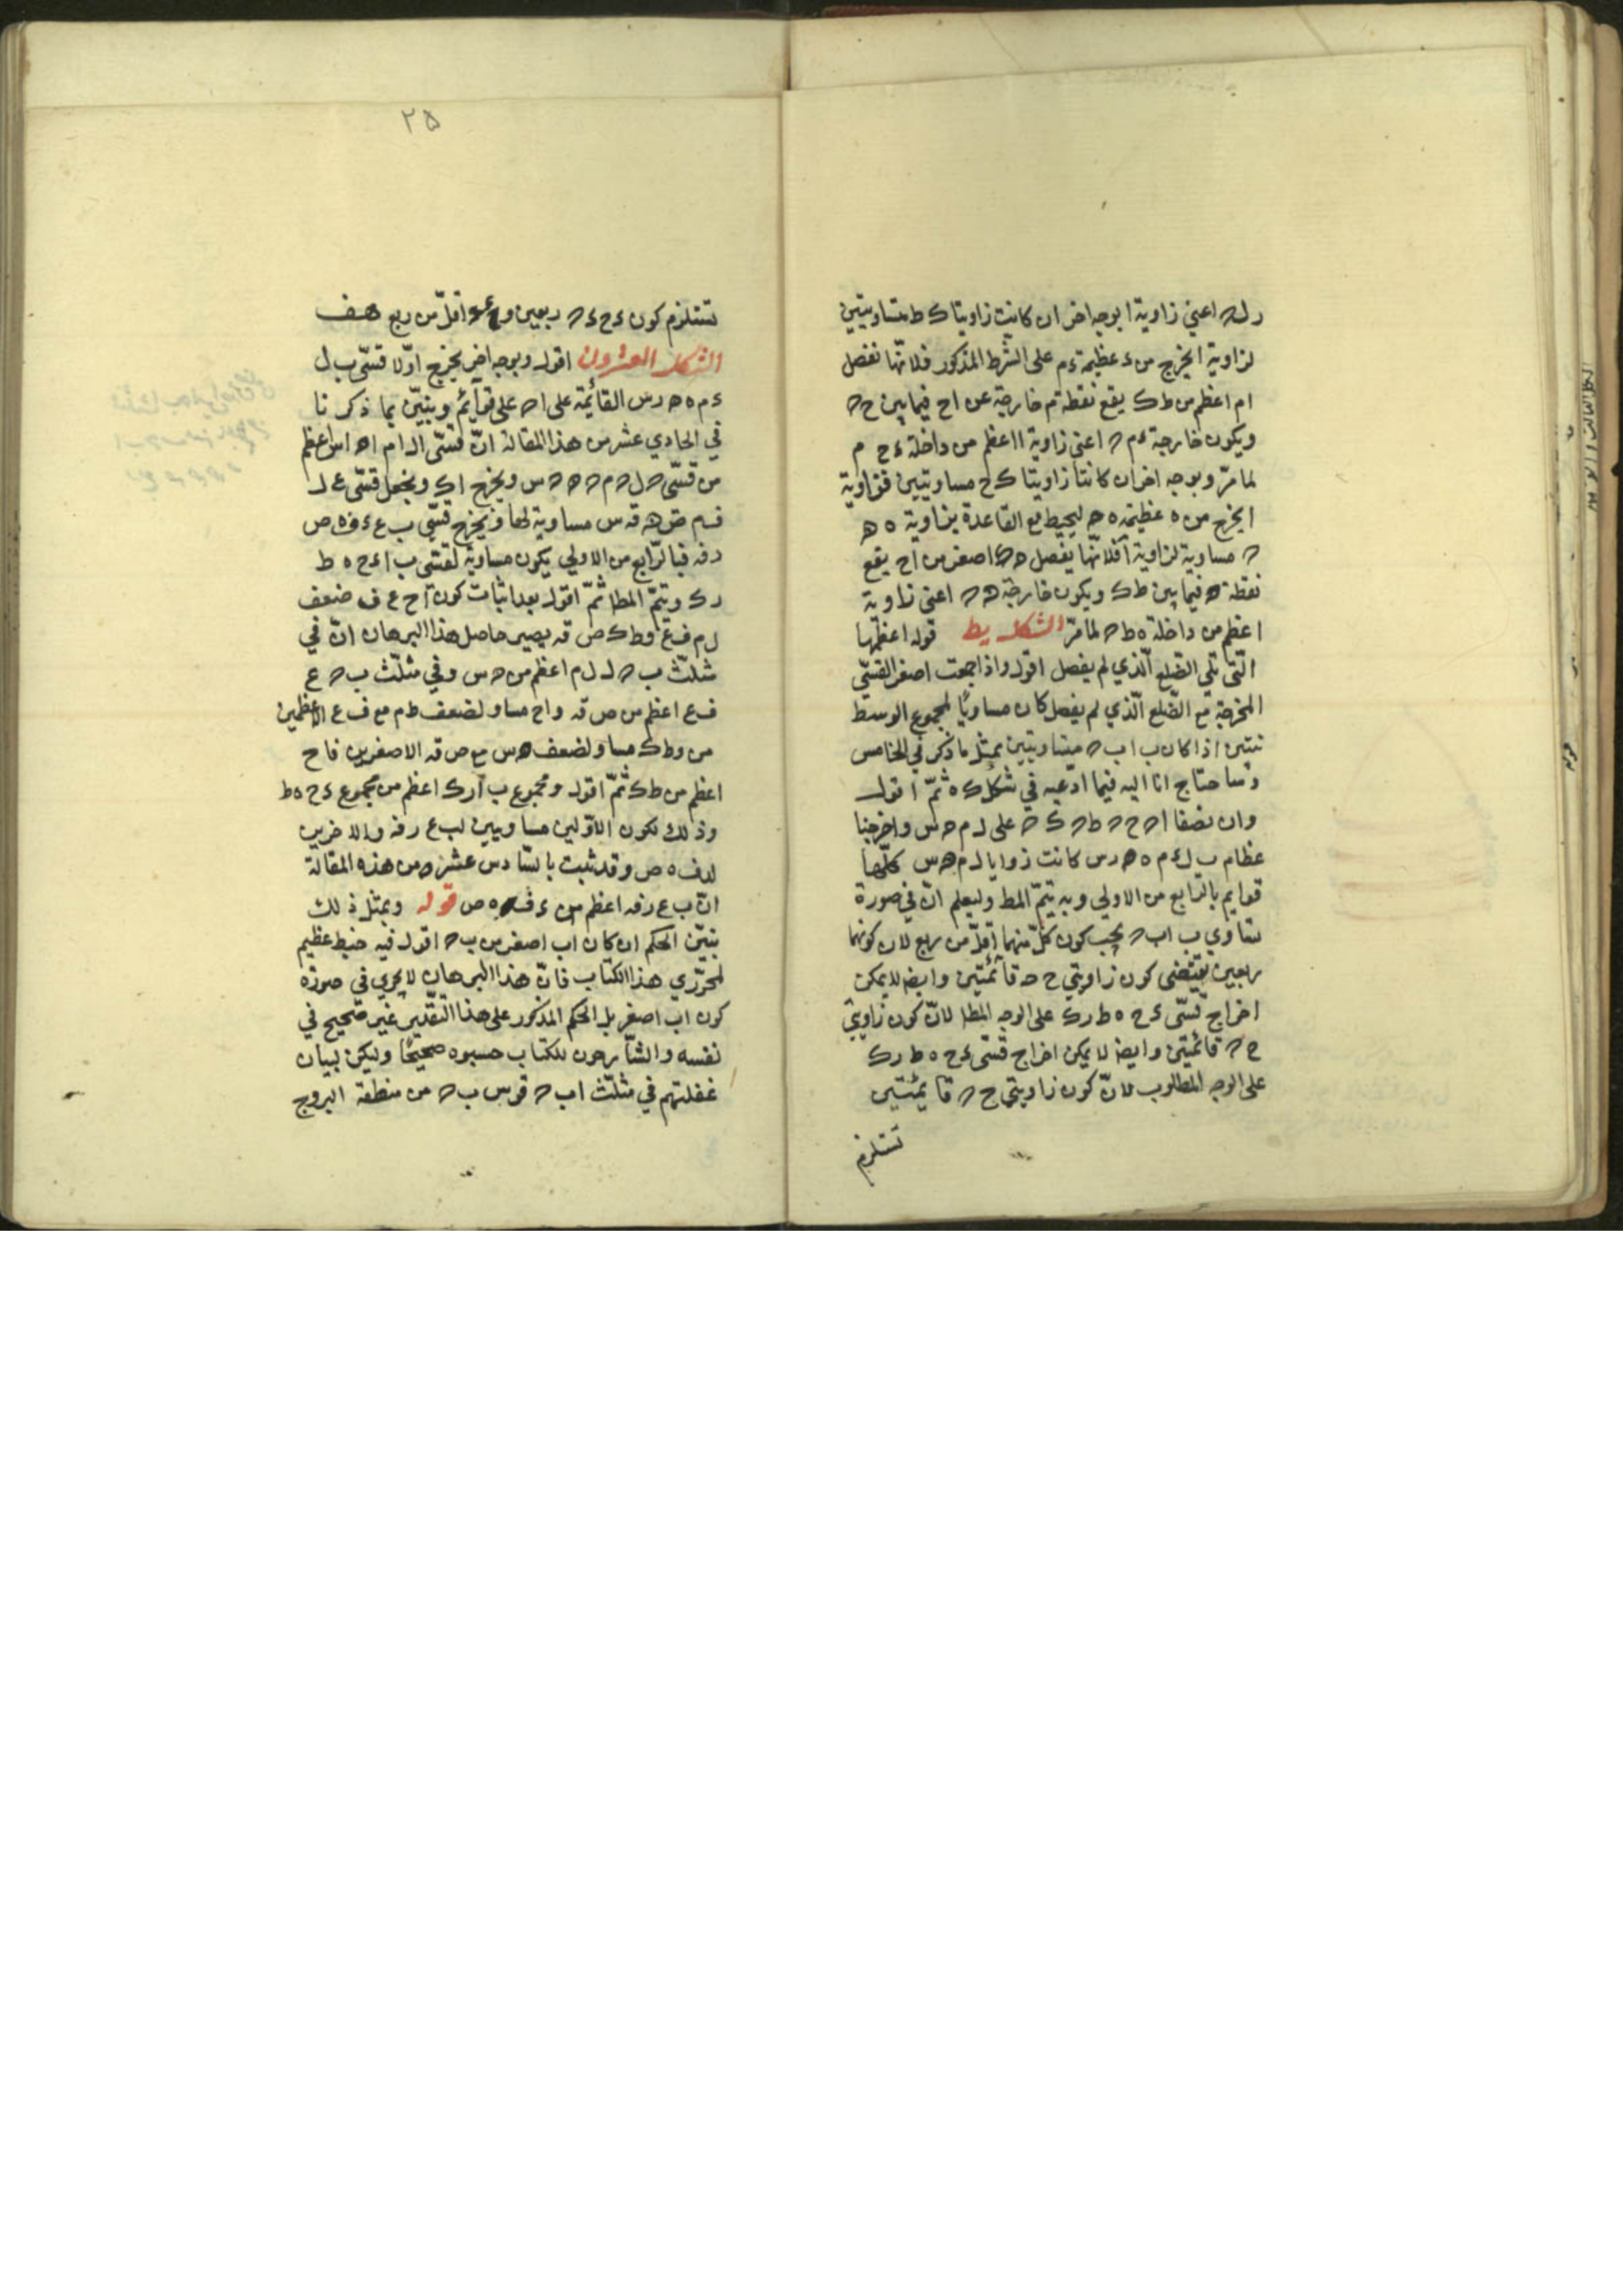 اعني زاوية ا بوجه اخر ان كانت زاويتا ك ط متساويتين
لزاوية ا يخرج من ء عظيمة ء م على الشرط المذكور فلانّها نفصل
ام اعظم من ط ك يقع نقطة م خارجة عن اح فيما بين ح ه
ويكون خارجة ء م ه اعني زاوية ا اعظم من داخلة ء ح م
لما مرّ وبوجه اخر ان كانتا زاويتا ك ح مساويتين فزاوية
ا يخرج من ه عظيمة ه ح ليحيط مع القاعدة بزاوية ه ه
ه مساوية لزاوية ا فلانّها يفصل ه ك اصغر من اح يقع
نقطة ه فيما بين ط ك ويكون خارجة ه ه اعني زاوية
ا عظم من داخلة ه ط ه لما مرّ الشكل يط قوله اعظمها
الّتي تلي الضّلع الّذي لم يفصل اقول واذا جمعت اصغر القسّي
المخرجة مع الضّلع الّذي لم يفصل كان مساويًا لمجموع الوسط
نتين اذا كان ب ا ب ه متساويتين بمثل ما ذكر في الخامس
وساحتاج انا اليه فيما ادّعيه في شكل ك ه ثمّ اقول
وان نصفا ا ه ح ه ط ه ك ه على ل م ه س واخرجنا
عظام ب ل ء م ه ه ر س كانت زوايا ل م ه س كلّها
قوايم بالرّابع من الاولي وبه يتمّ المط وليعلم انّ في صورة
تساوي ب ا ب ه يجب كون كلّ منهما اقلّ من ربع لان كونهما
ربعين يقتضي كون زاويتي ح ه قائمتين وايضا لا يمكن
اخراج قسّى ء ح ه ط ر ك على الوجه المط لانّ كون زاويتي
ح ه قائمتين وايضا لا يمكن اخراج قسّى ء ح ه ط ر ك
على الوجه المطلوب لانّ كون زاويتي ح ه قايمتين
تستلزم
٢۵
تستلزم كون ء ح ء ه ربعين و اقلّ من ربع هف
الشكل العشرون اقول وبوجه اخر يخرج اوّلا قسّى ب ل
ء م ه ه ر س القائمة على ا ه على قوائم ونبيّن بما ذكرنا
في الحادي عشر من هذا المقالة انّ قسّى ال ام ا ه ا س اعظم
من قسّى ه ل ه م ه ه ه س ويخرج ا ك ويجعل قسّى ع ل
مساوية لها ويخرج قسّى ب ع ء ف ه ص
ر قه فبالرّابع من الاولي يكون مساوية لقسّى ب ا ء ح ه ط
ر ك ويتمّ المط ثمّ اقول بعد اثبات كون اح ع ف ضعف
ل م ف ع وط ك ص قه يصير حاصل هذا البرهان انّ في
مثلّث ب ه ل ل م اعظم من ه س وفي مثلّث ب ه ع
ف ع اعظم من ص قه واح مساو لضعف ط م مع ف ع الاعظمين
من وط ك مساو لضعف ه س مع ص قه الاصغرين فاح
اعظم من ط ك ثمّ اقول ومجموع ب ا ر ك اعظم من مجموع ء ح ه ط
وذلك لكون الاوّلين مساويين لب ع ر قه والاخرين
لء ف ه ص وقد ثبت بالسّادس عشر من هذه المقالة
انّ ب ع ر قه اعظم من ء ف ه ص قوله وبمثل ذلك
نبيّن الحكم ان كان ا ب اصغر من ب ه اقول فيه خبط عظيم
لمحرّري هذا الكتاب فانّ هذا البرهان لا يجري في صورة
كون ا ب اصغر بل الحكم المذكور على هذا التقدير غير صحيح في
نفسه والشّارحون للكتاب حسبوه صحيحًا وليكن لبيان
غفلتهم في مثلّث ا ب ه قوس ب ه من منطقة البروج